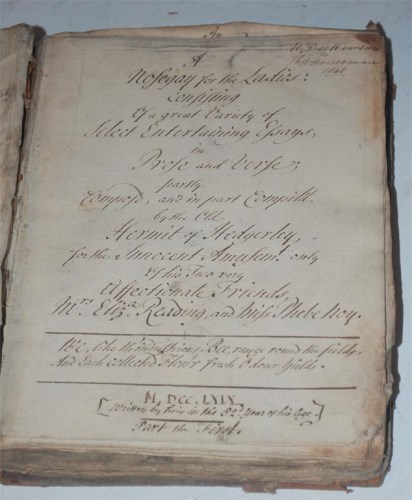 A
Nosegay for the Ladies:
Consisting
Of a great Variety of
Select Entertaining Essays,
in
Prose and Verse;
partly
Compos'd, and in part Compil'd,
by the Old
Hermit of Hedgerley,
for the Innocent Amusemt only
Of his Two very
Affectionate Friends,
Mrs Eliza Reading, and Miss Phebe Noy.
like th' industrious Bee, range round the fields,
And Each collected Flow'r fresh Odour yields.
M.DCC.LXIX.
[Written by him in the 82d Year of his Age.]
Part the First.